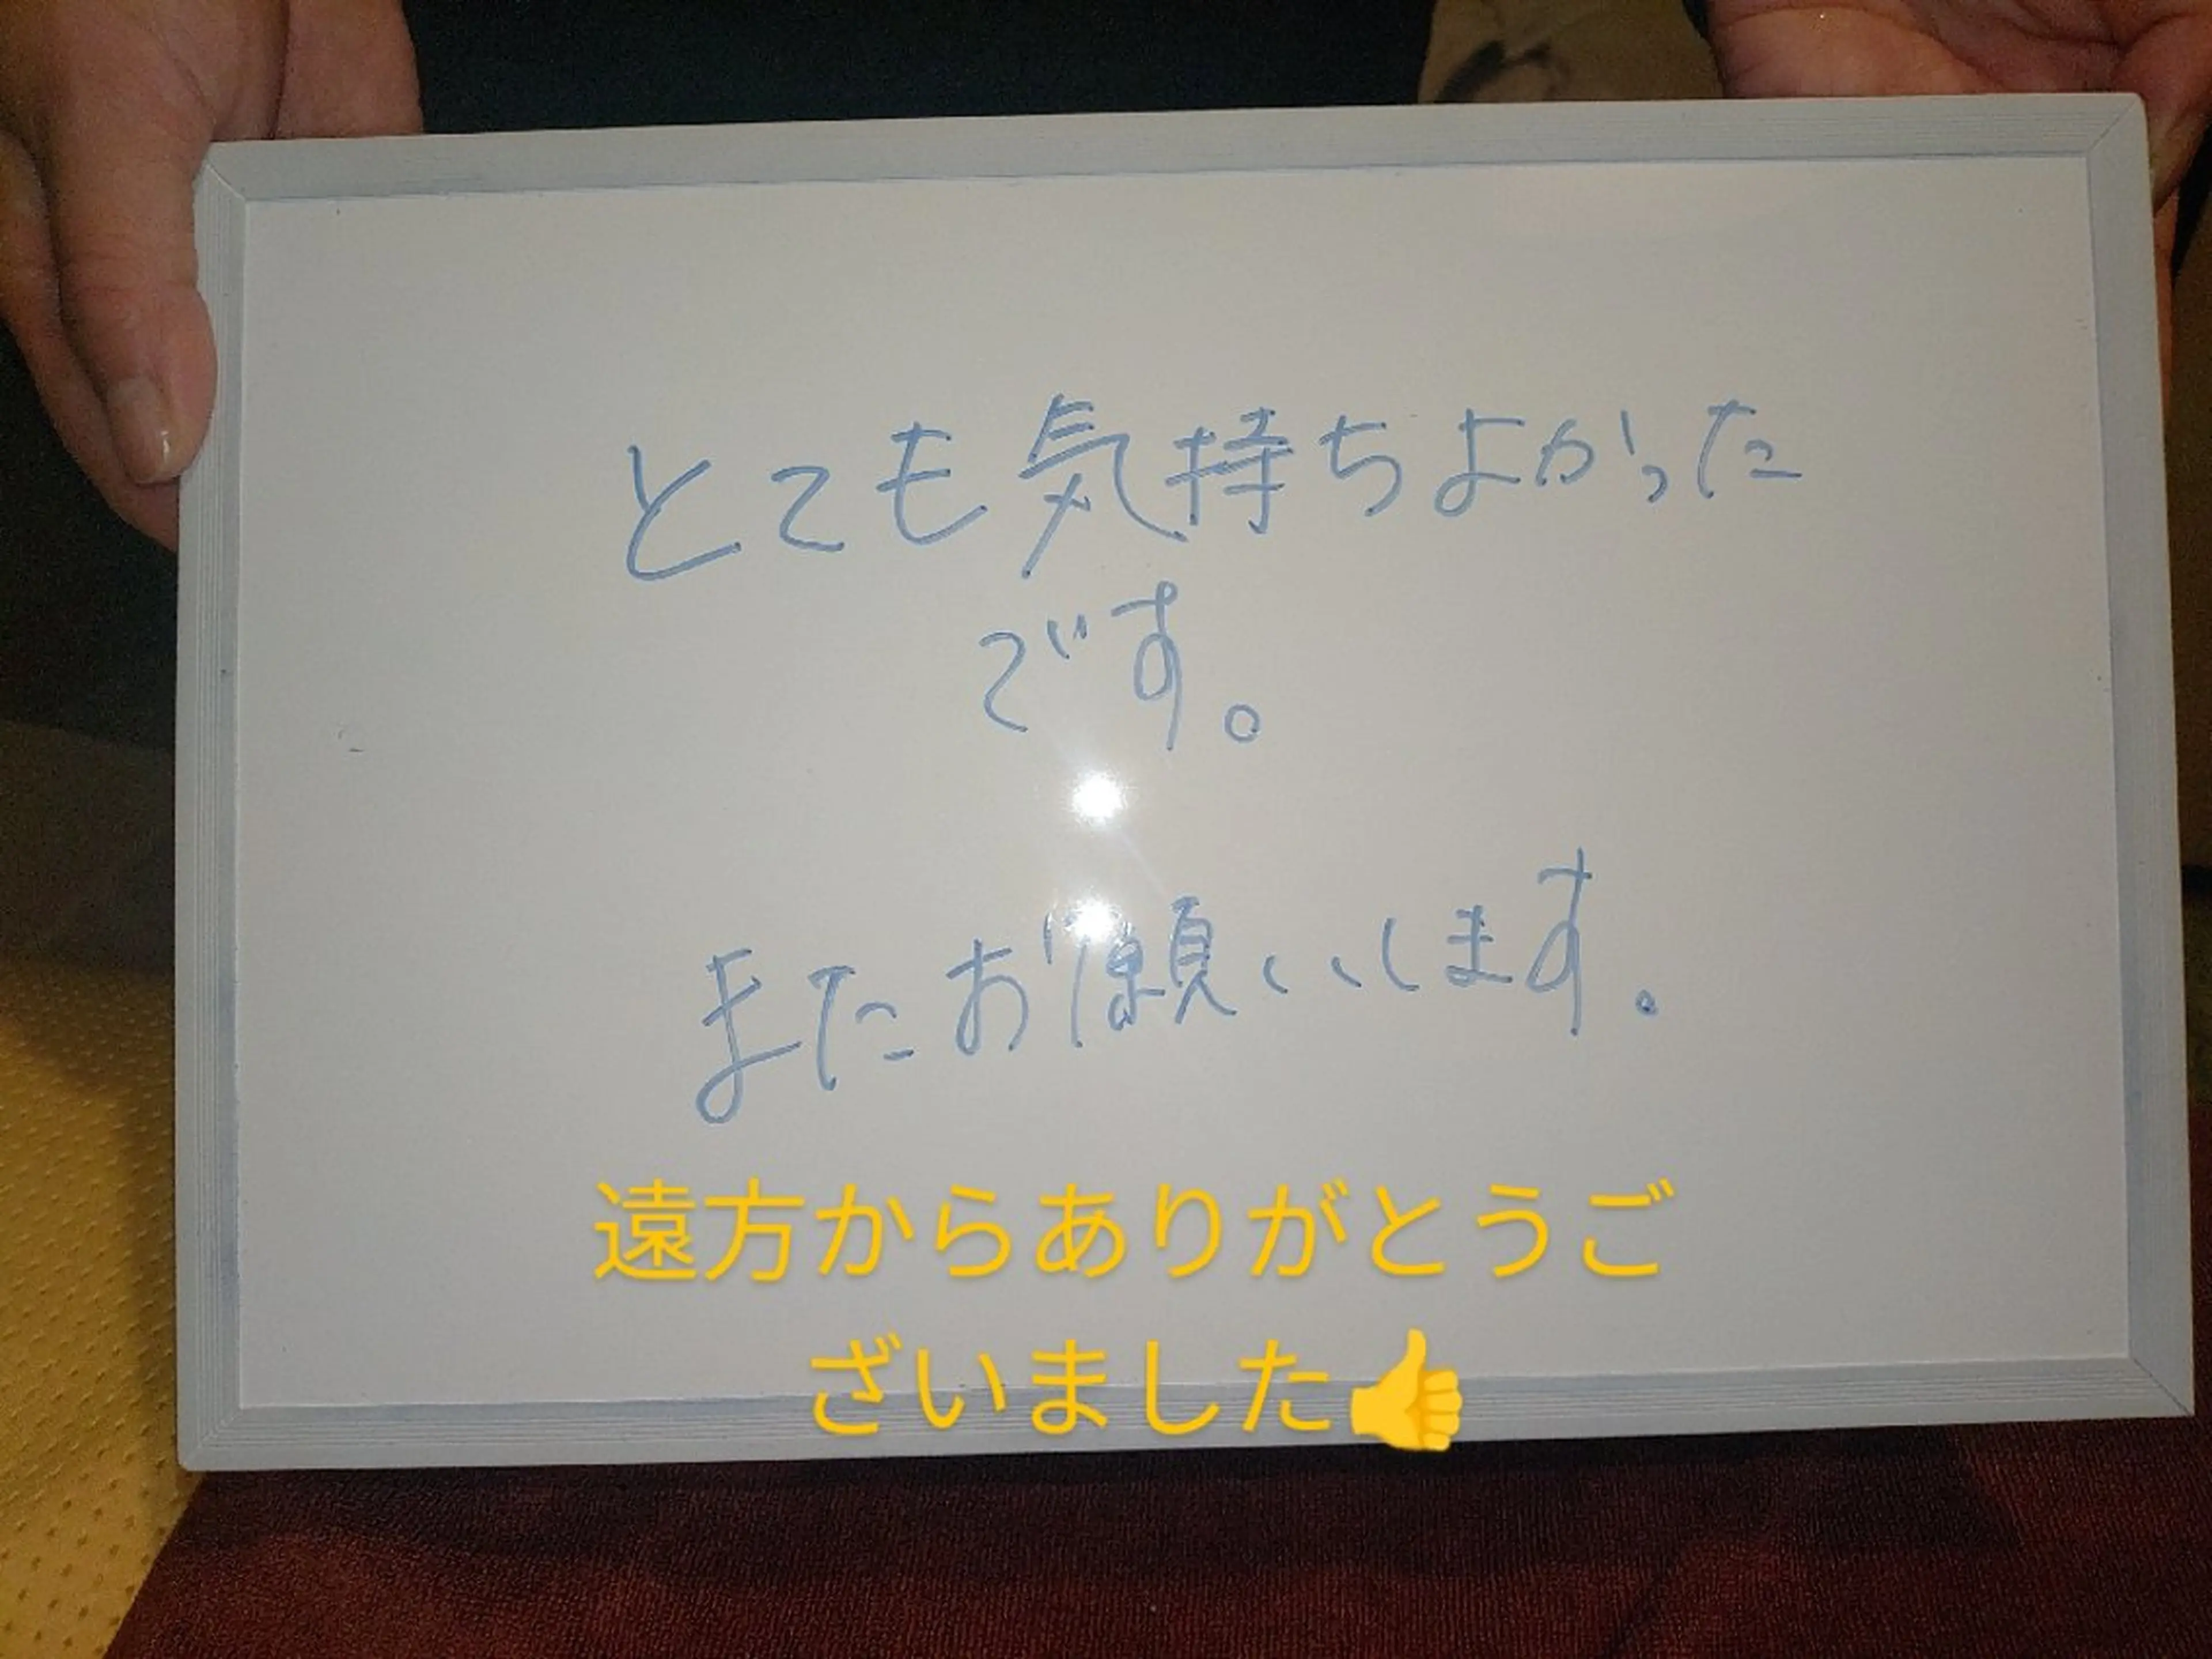 とても気持ちよかった
です。
またお願いします。
遠方からありがとうご
ざいました👍